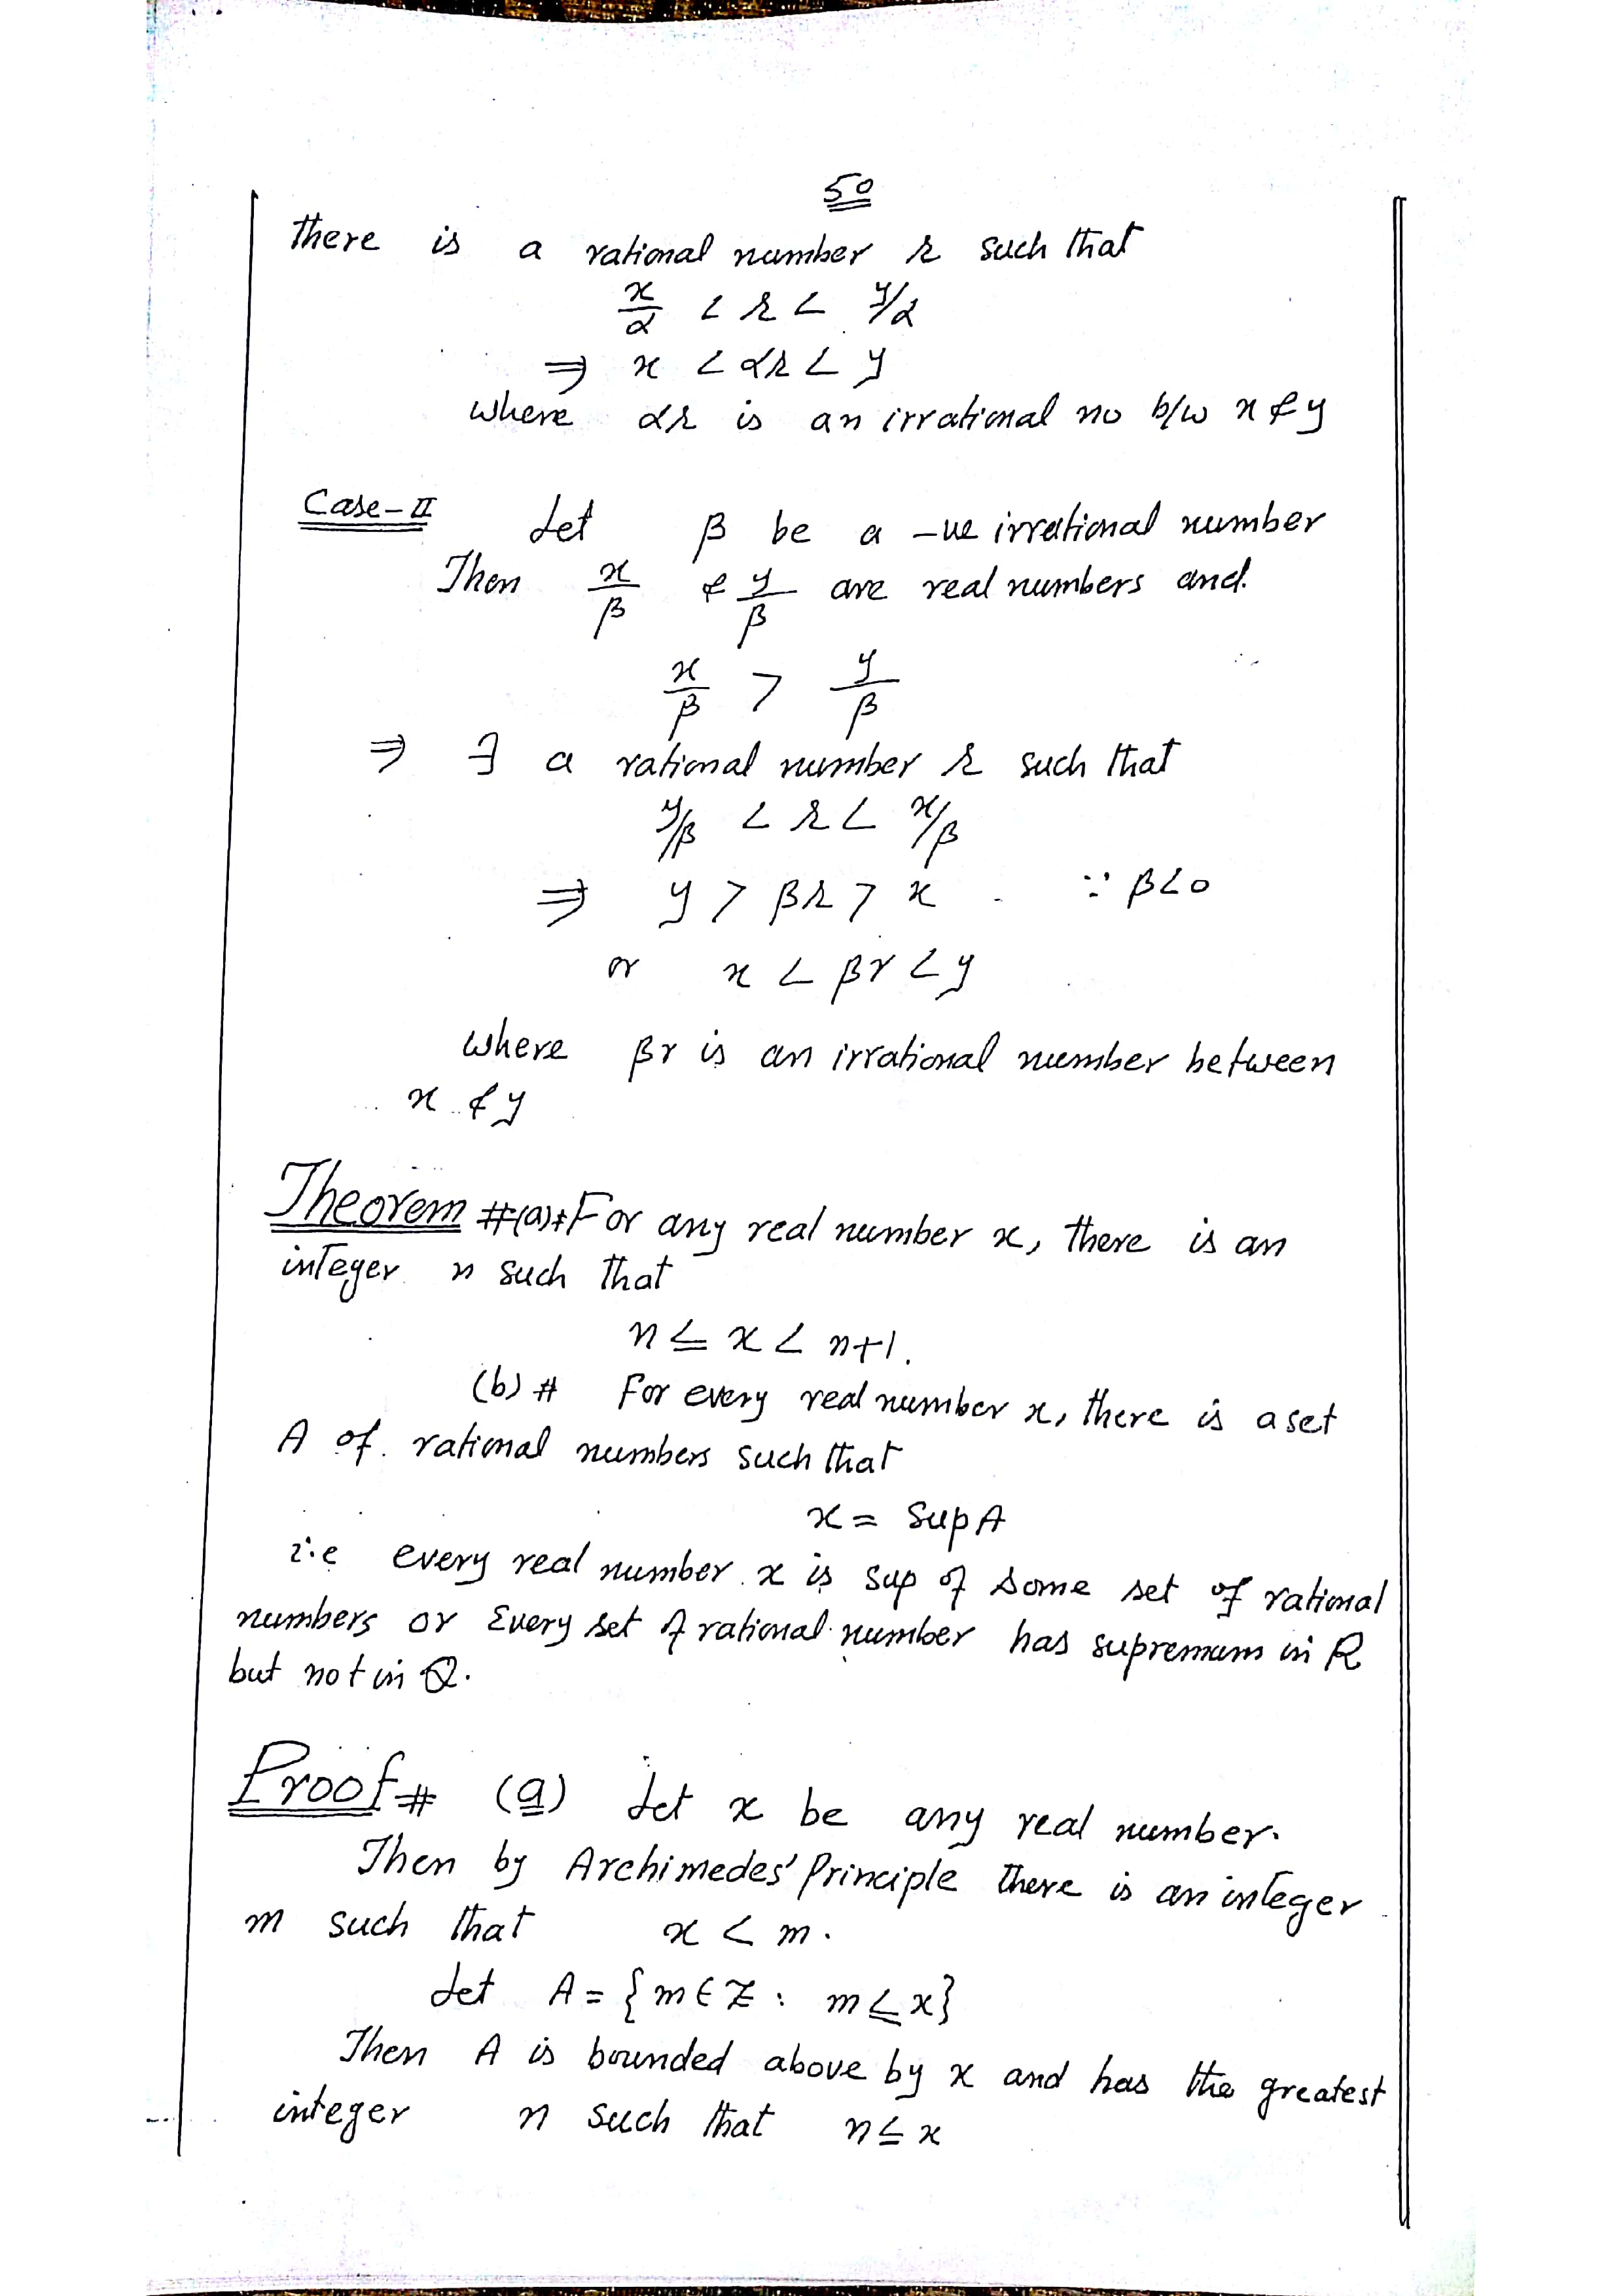 50
there is a rational number r such that
x/α < r < y/α
⇒ x < αr < y
where αr is an irrational no b/w x & y
Case-II Let β be a -ve irrational number
Then x/β & y/β are real numbers and
x/β > y/β
⇒ ∃ a rational number r such that
y/β < r < x/β
⇒ y > βr > x ∵ β<0
or x < βr < y
where βr is an irrational number between
x & y
Theorem #(a)# For any real number x, there is an
integer n such that
n ≤ x < n+1.
(b) # For every real number x, there is a set
A of rational numbers such that
x = Sup A
i.e every real number x is sup of some set of rational
numbers or Every set of rational number has supremum in R
but not in Q.
Proof # (a) Let x be any real number.
Then by Archimedes' Principle there is an integer
m such that x < m.
Let A = {m ∈ Z : m ≤ x}
Then A is bounded above by x and has the greatest
integer n such that n ≤ x